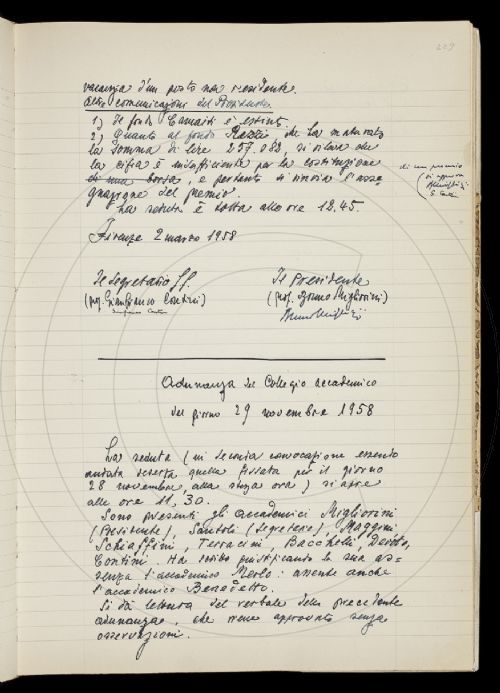 229
vacanza d'un posto non residente.
Altre comunicazioni del Presidente.
1) Il fondo è estinto.
2) Quanto al fondo Rezzi che ha maturato
la somma di lire 257.083, si rileva che
la cifra è insufficiente per la costituzione
di una borsa, e pertanto si rinvia l'asse-
gnazione del premio
di un premio
(si approva
La seduta è tolta alle ore 12.45.
Firenze 2 marzo 1958
Il Segretario ff.
(prof. Gianfranco Contini)
Gianfranco Contini
Il Presidente
(prof. Bruno Migliorini)
Bruno Migliorini
Adunanza del Collegio accademico
del giorno 29 novembre 1958
La seduta (in seconda convocazione essendo
andata deserta quella fissata per il giorno
28 novembre alla stessa ora) si apre
alle ore 11,30.
Sono presenti gli accademici Migliorini
(Presidente), Santoli (Segretario), Maggini,
Schiaffini, Terracini, Bacchelli, Devoto,
Contini. Ha scritto giustificando la sua as-
senza l'accademico Merlo: assente anche
l'accademico Benedetto.
Si dà lettura del verbale della precedente
adunanza, che viene approvato senza
osservazioni.